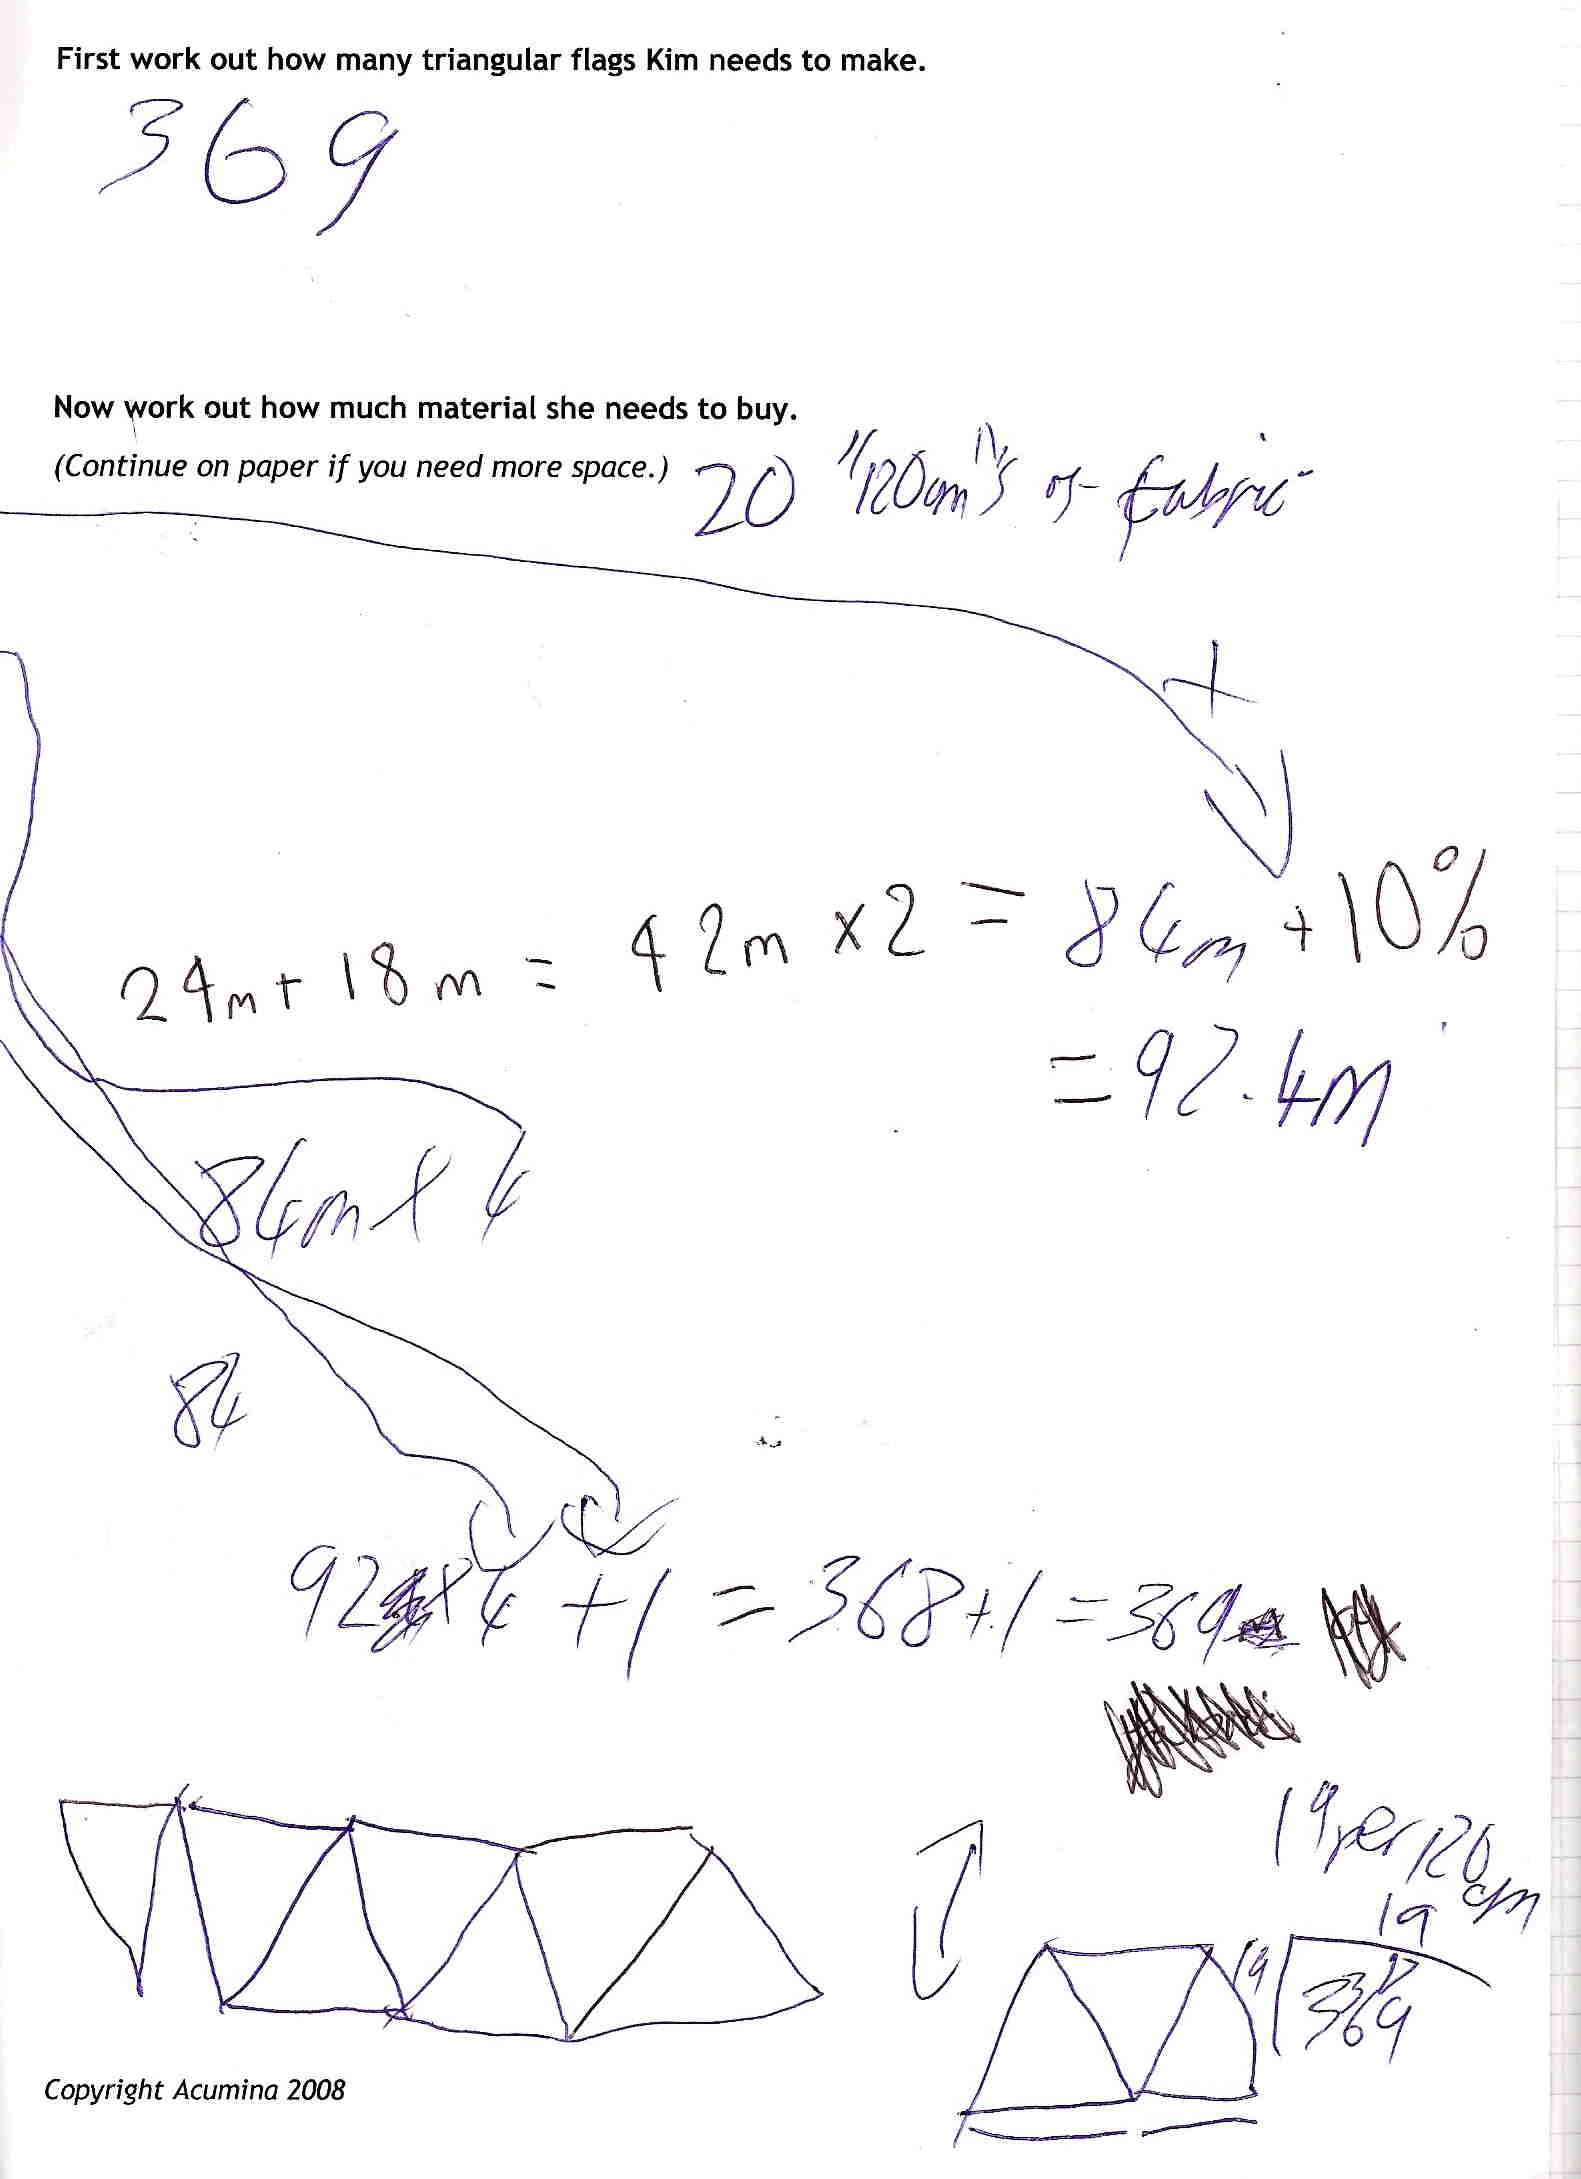 First work out how many triangular flags Kim needs to make.
369
Now work out how much material she needs to buy.
(Continue on paper if you need more space.)
20 "120cm"s of fabric
+
24m + 18m = 42m x 2 = 84m + 10%
= 92.4m
84m x 4
84
92 x 4 + 1 = 368 + 1 = 369
19 per 120cm
19
19 369
Copyright Acumina 2008